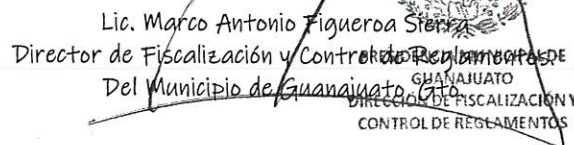 Lic. Marco Antonio Figueroa Sierra
Director de Fiscalización y Control de Reglamentos,
Del Municipio de Guanajuato, Gto.
PRESIDENCIA MUNICIPAL DE
GUANAJUATO
DIRECCIÓN DE FISCALIZACIÓN Y
CONTROL DE REGLAMENTOS